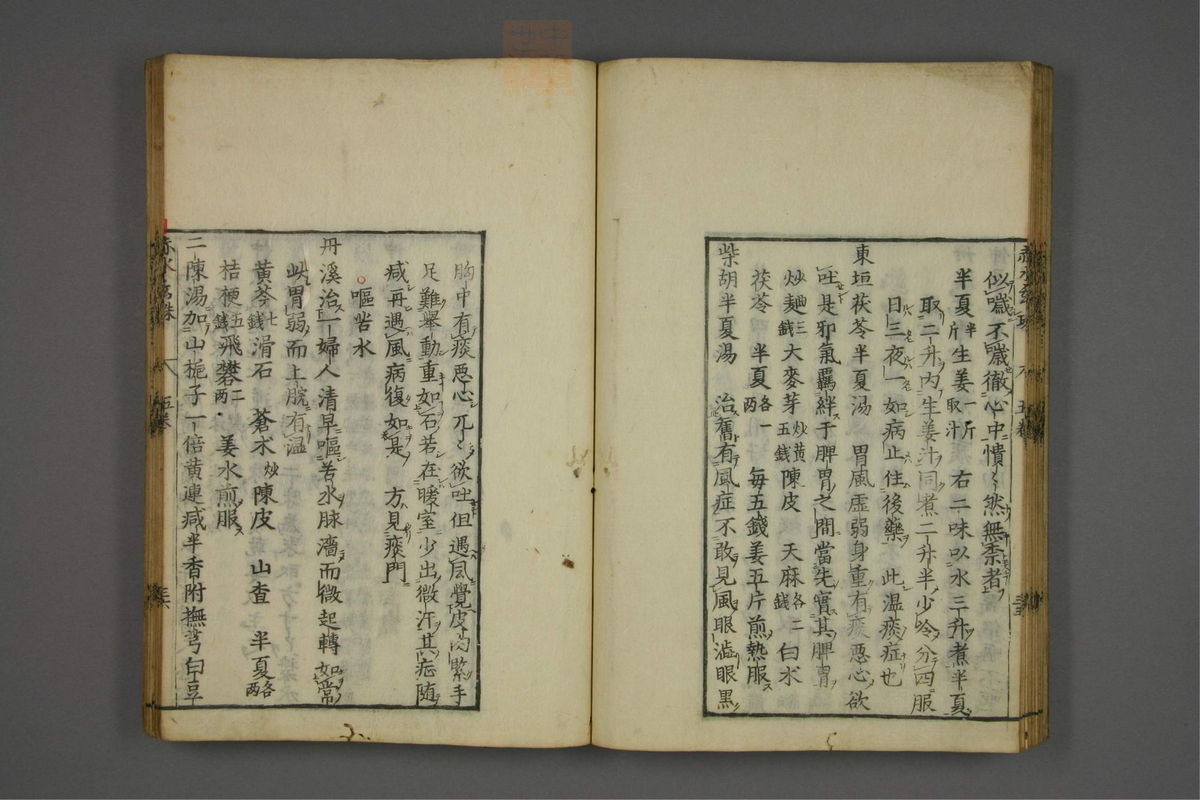 似噦不噦徹心中憒々然無柰者
半夏半斤生姜一斤取汁 右二味以水三升煮半夏
取二升内生姜汁同煮二升半少冷分四服
日三夜一如病止住後藥 此温痰症也
東垣茯苓半夏湯 胃風虚弱身重有痰悪心欲
吐是邪氣羈絆于脾胃之間當先實其脾胃
炒麯三錢大麥芽炒黄五錢陳皮 天麻各二錢白朮
茯苓 半夏各一両 毎五錢姜五片煎熱服
柴胡半夏湯 治舊有風症不敢見風眼澁眼黒
胸中有痰悪心兀々欲吐但遇風覺皮肉緊手
足難舉動重如石若在暖室少出微汗其症随
减再遇風病復如是 方見痰門
嘔苦水
丹溪治一婦人清早嘔苦水脉濇而微起轉如常
此胃弱而上脘有温
黄芩七錢滑石 蒼朮炒陳皮 山査 半夏各両
桔梗五錢飛礬二両 姜水煎服
二陳湯加山梔子一倍黄連减半香附撫芎白豆